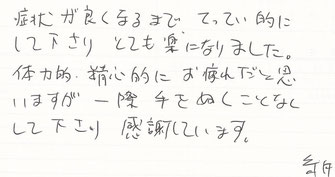 症状が良くなるまで てってい的に
して下さり とても楽になりました。
体力的・精心的に お疲れだと思
いますが 一際 手をぬくことなく
して下さり 感謝しています。